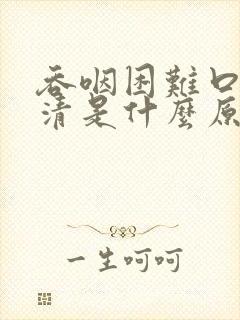 吞咽困難口
清是什麼原
一生呵呵